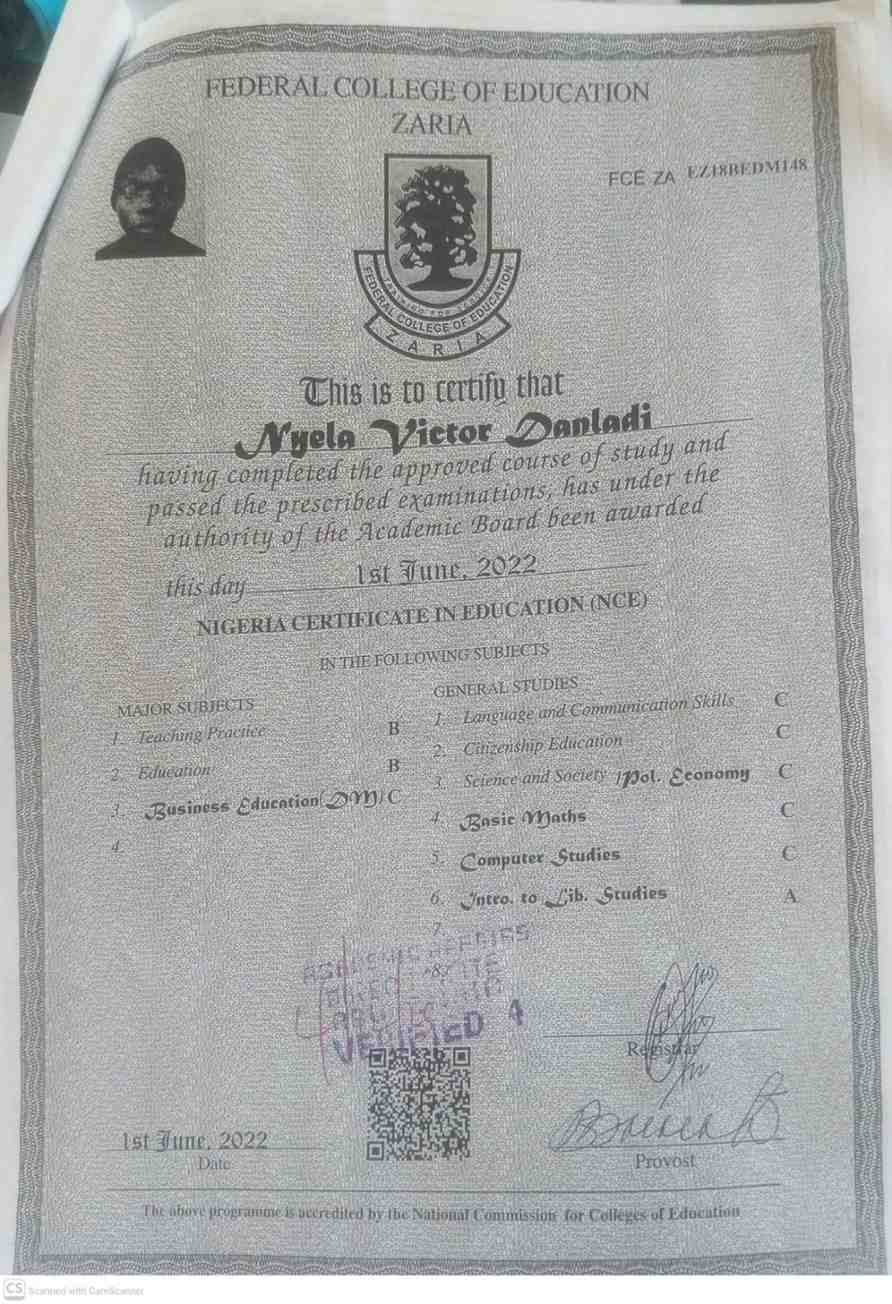 FEDERAL COLLEGE OF EDUCATION
ZARIA
FCE ZA EZ18BEDM148
FEDERAL COLLEGE OF EDUCATION
ZARIA
This is to certify that
Nyela Victor Danladi
having completed the approved course of study and
passed the prescribed examinations, has under the
authority of the Academic Board been awarded
this day 1st June, 2022
NIGERIA CERTIFICATE IN EDUCATION (NCE)
IN THE FOLLOWING SUBJECTS
MAJOR SUBJECTS
1. Teaching Practice B
2. Education B
3. Business Education(DM) C
4.
GENERAL STUDIES
1. Language and Communication Skills C
2. Citizenship Education C
3. Science and Society /Pol. Economy C
4. Basic Maths C
5. Computer Studies C
6. Intro. to Lib. Studies A
7.
8.
ACADEMIC AFFAIRS
VERIFIED 4
Registrar
Provost
1st June, 2022
Date
The above programme is accredited by the National Commission for Colleges of Education
CS Scanned with CamScanner